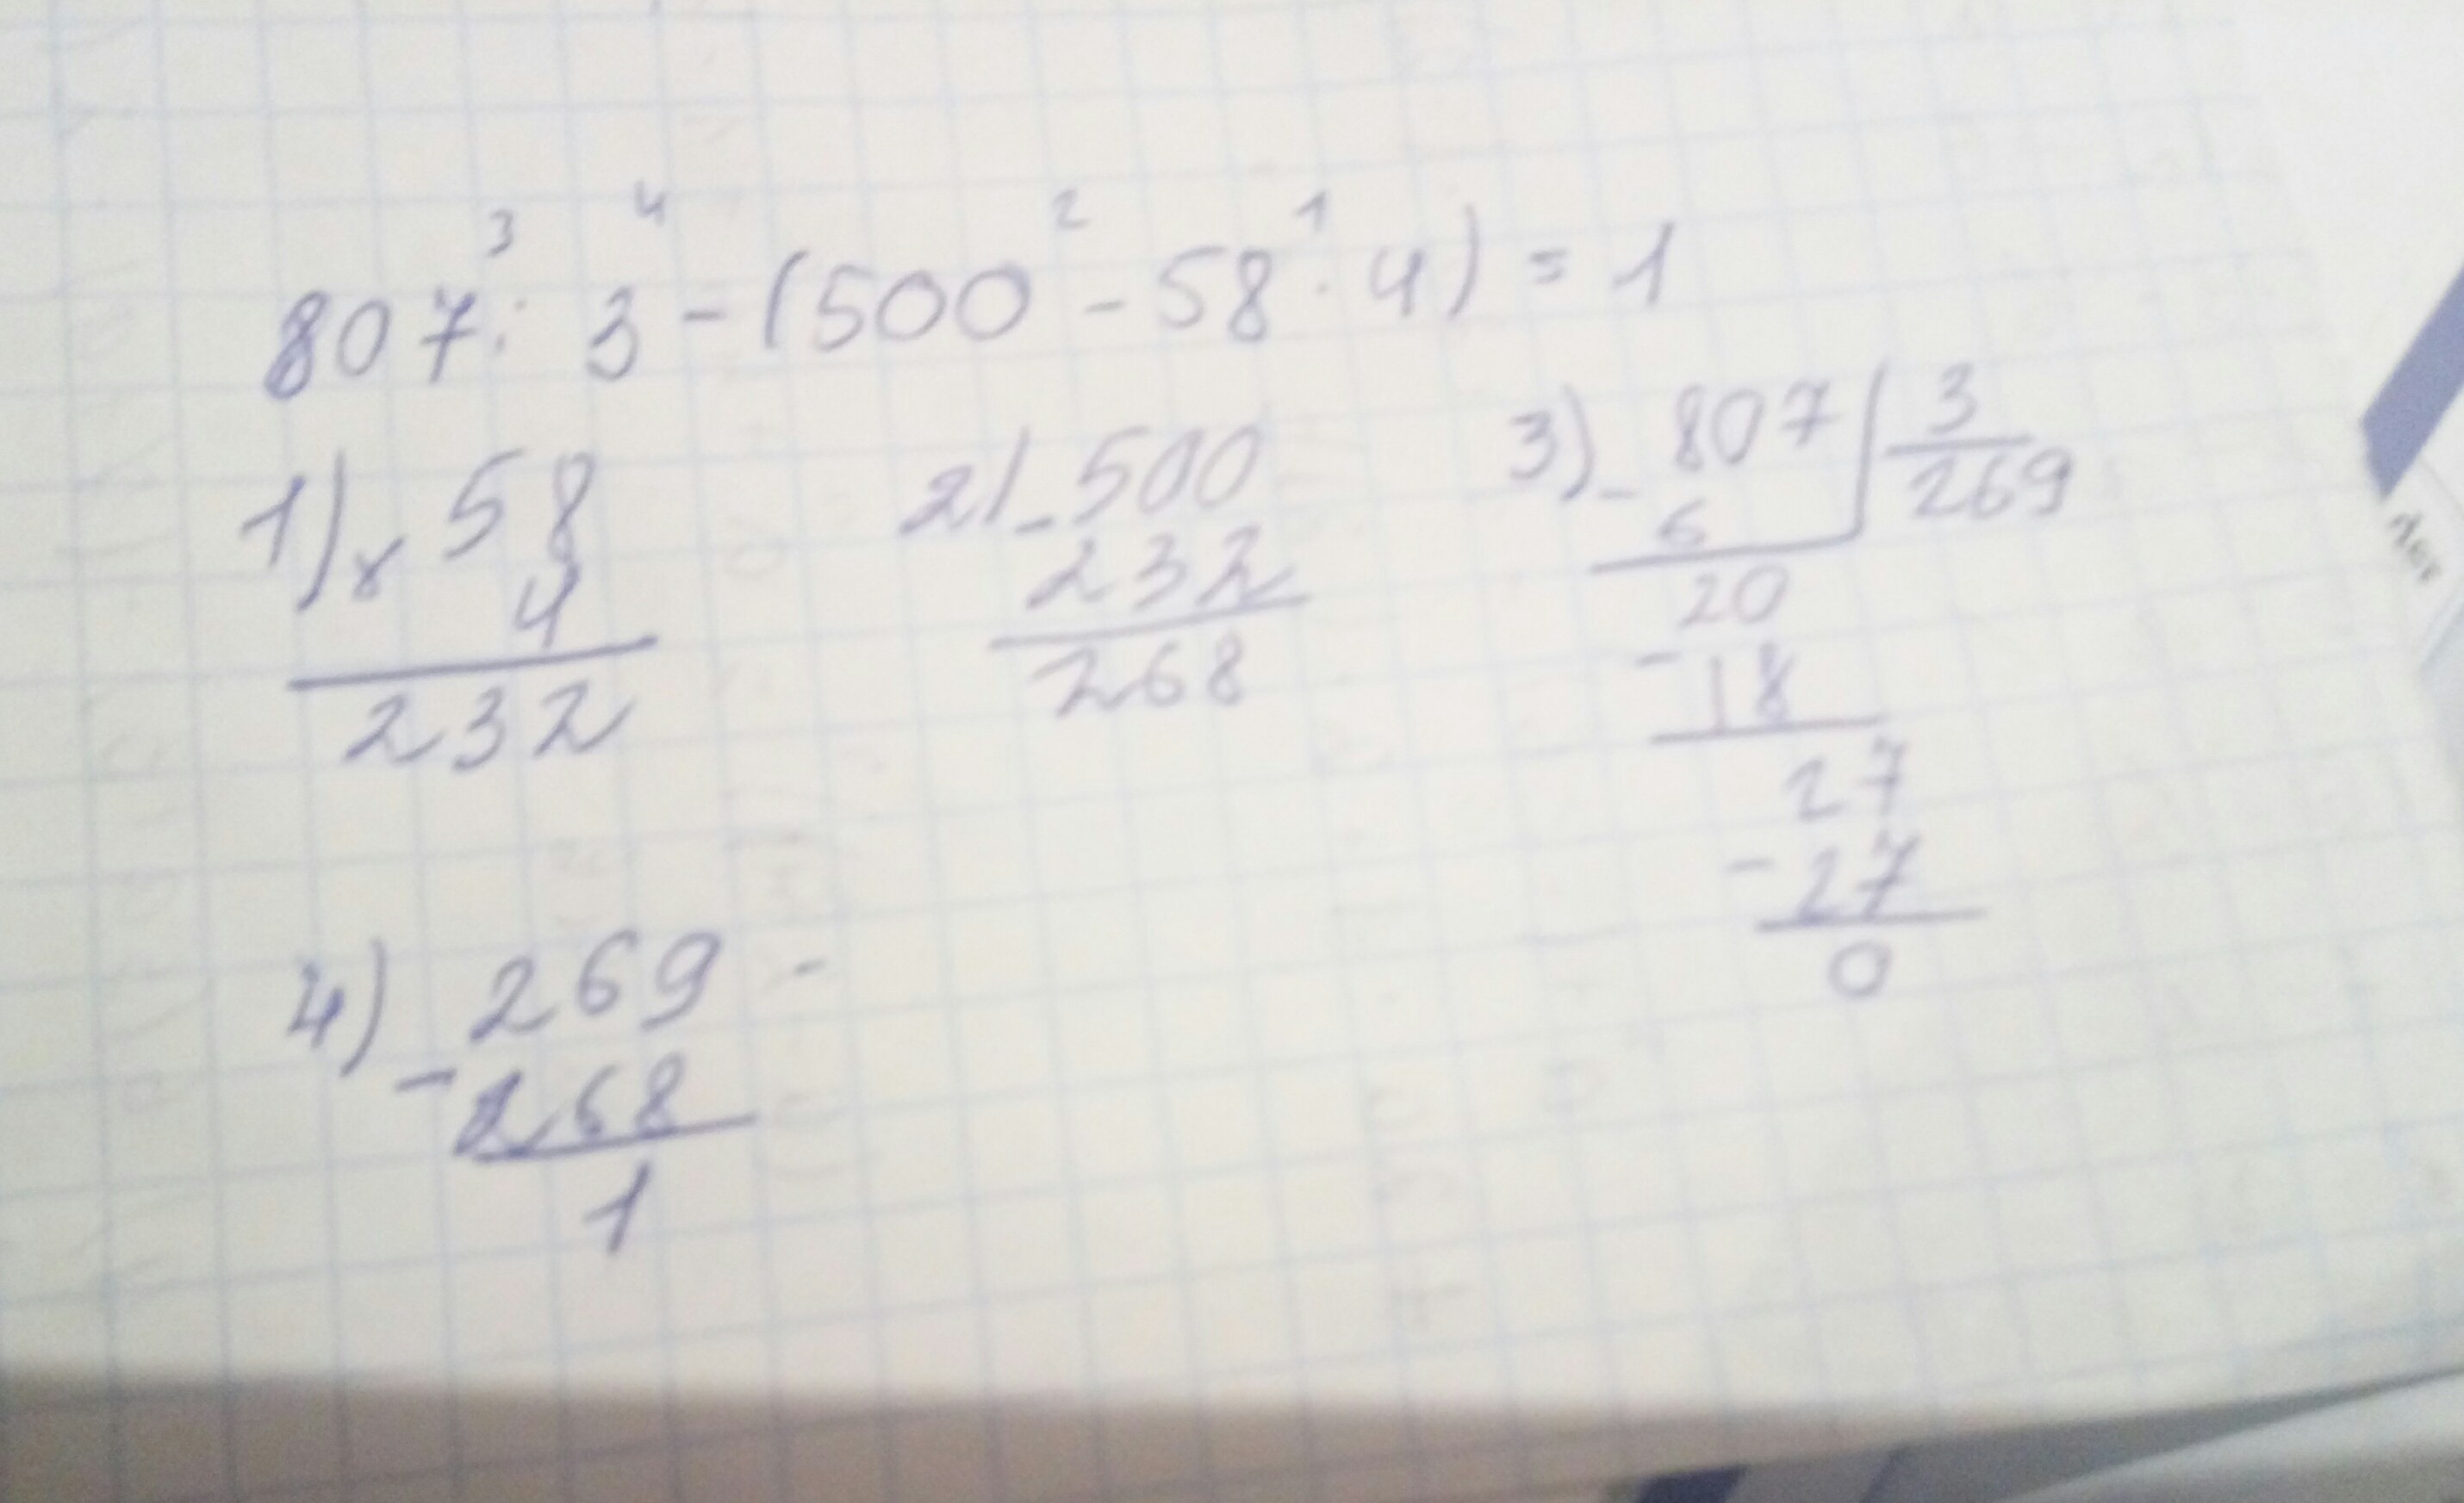 3 4 2 1
807 : 3 - (500 - 58 · 4) = 1
1) x 58
4
232
2) - 500
232
268
3) - 807 | 3
6 269
20
- 18
27
- 27
0
4) 269 -
- 268
1